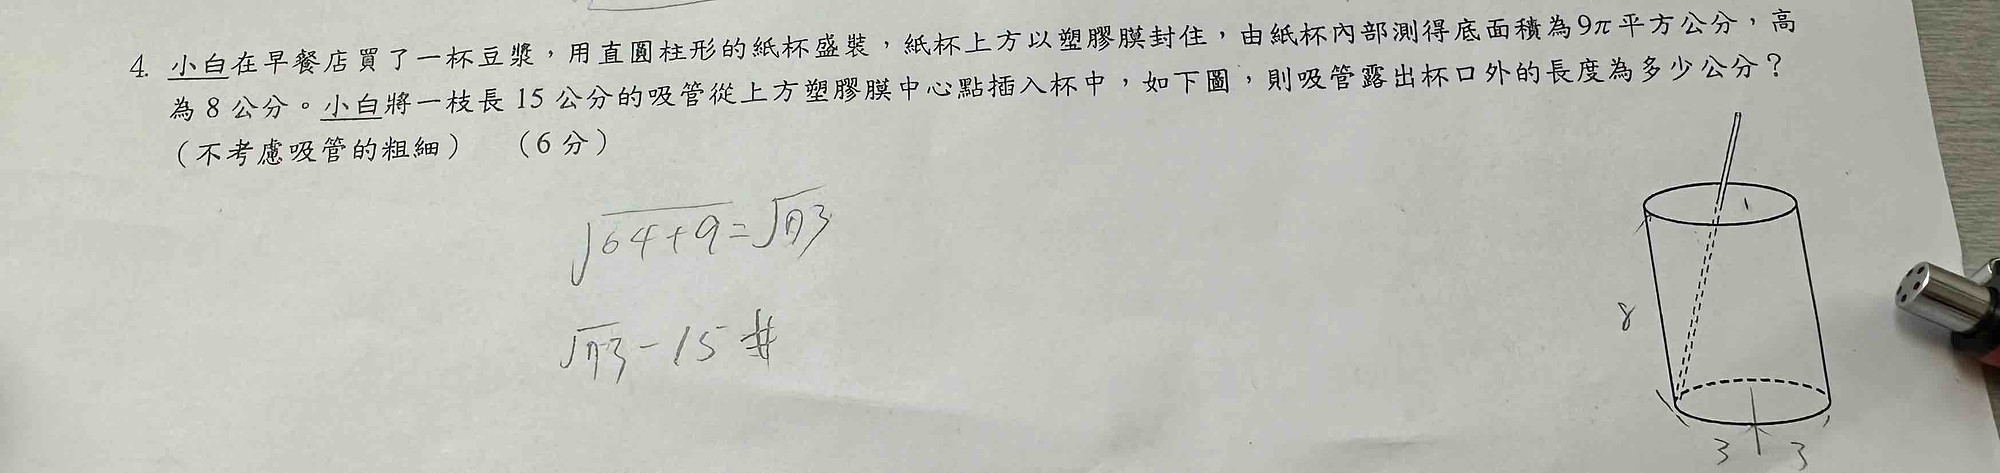 4. 小白在早餐店買了一杯豆漿，用直圓柱形的紙杯盛裝，紙杯上方以塑膠膜封住，由紙杯內部測得底面積為9π平方公分，高
為 8 公分。小白將一枝長 15 公分的吸管從上方塑膠膜中心點插入杯中，如下圖，則吸管露出杯口外的長度為多少公分？
（不考慮吸管的粗細） （6 分）
√64+9=√73
√73-15 #
8
3 3